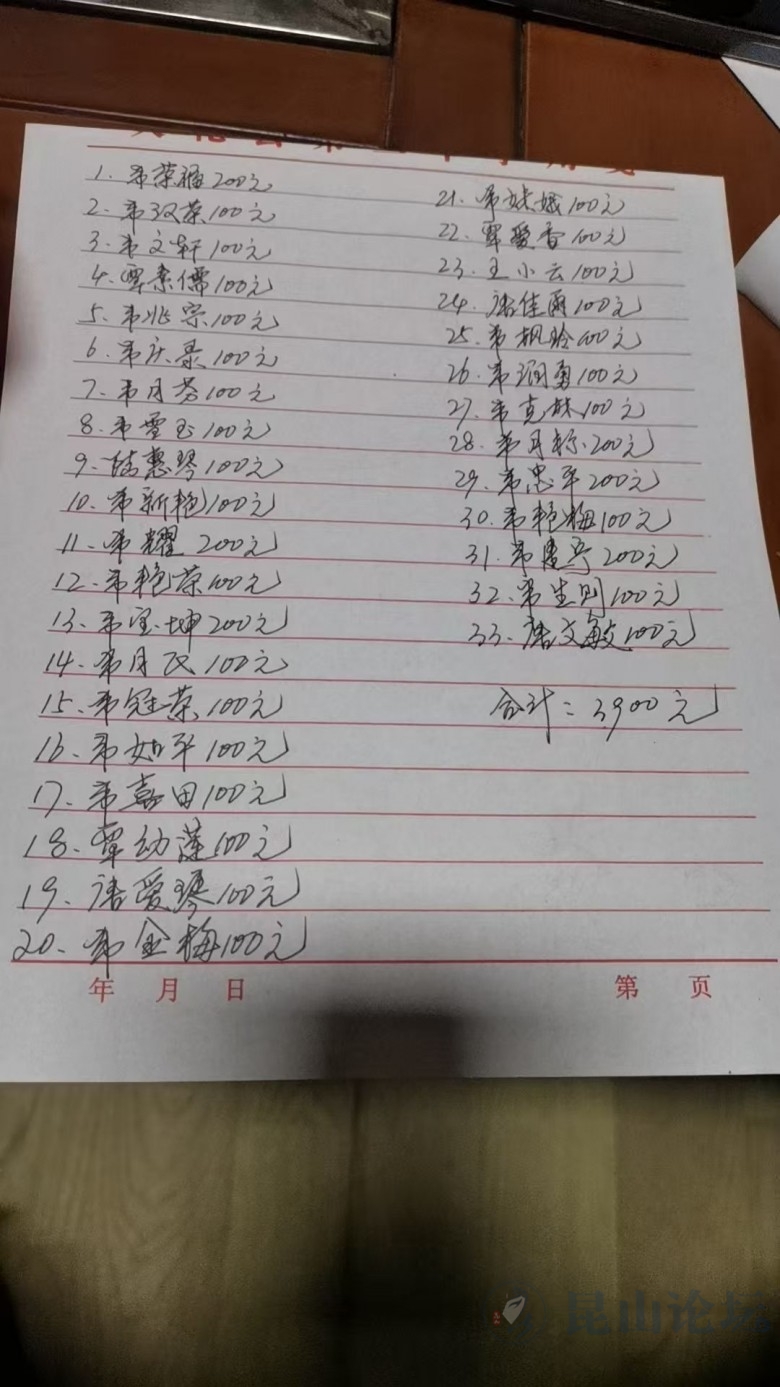 1. 韦荣福200元
2. 韦汉荣100元
3. 韦文轩100元
4. 覃素儒100元
5. 韦兆宗100元
6. 韦庆录100元
7. 韦月芬100元
8. 韦雪玉100元
9. 陆惠琴100元
10. 韦新艳100元
11. 韦耀 200元
12. 韦艳荣100元
13. 韦宝坤200元
14. 韦月民100元
15. 韦冠荣100元
16. 韦如平100元
17. 韦嘉田100元
18. 覃幼莲100元
19. 唐爱琴100元
20. 韦金梅100元
21. 韦妹娥100元
22. 覃爱香100元
23. 王小云100元
24. 唐佳雨100元
25. 韦枫玲100元
26. 韦润勇100元
27. 韦克妹100元
28. 韦月标200元
29. 韦忠平200元
30. 韦艳梅100元
31. 韦建 200元
32. 韦生则100元
33. 唐文敏100元
合计：3900元
年 月 日
第 页
昆山论坛